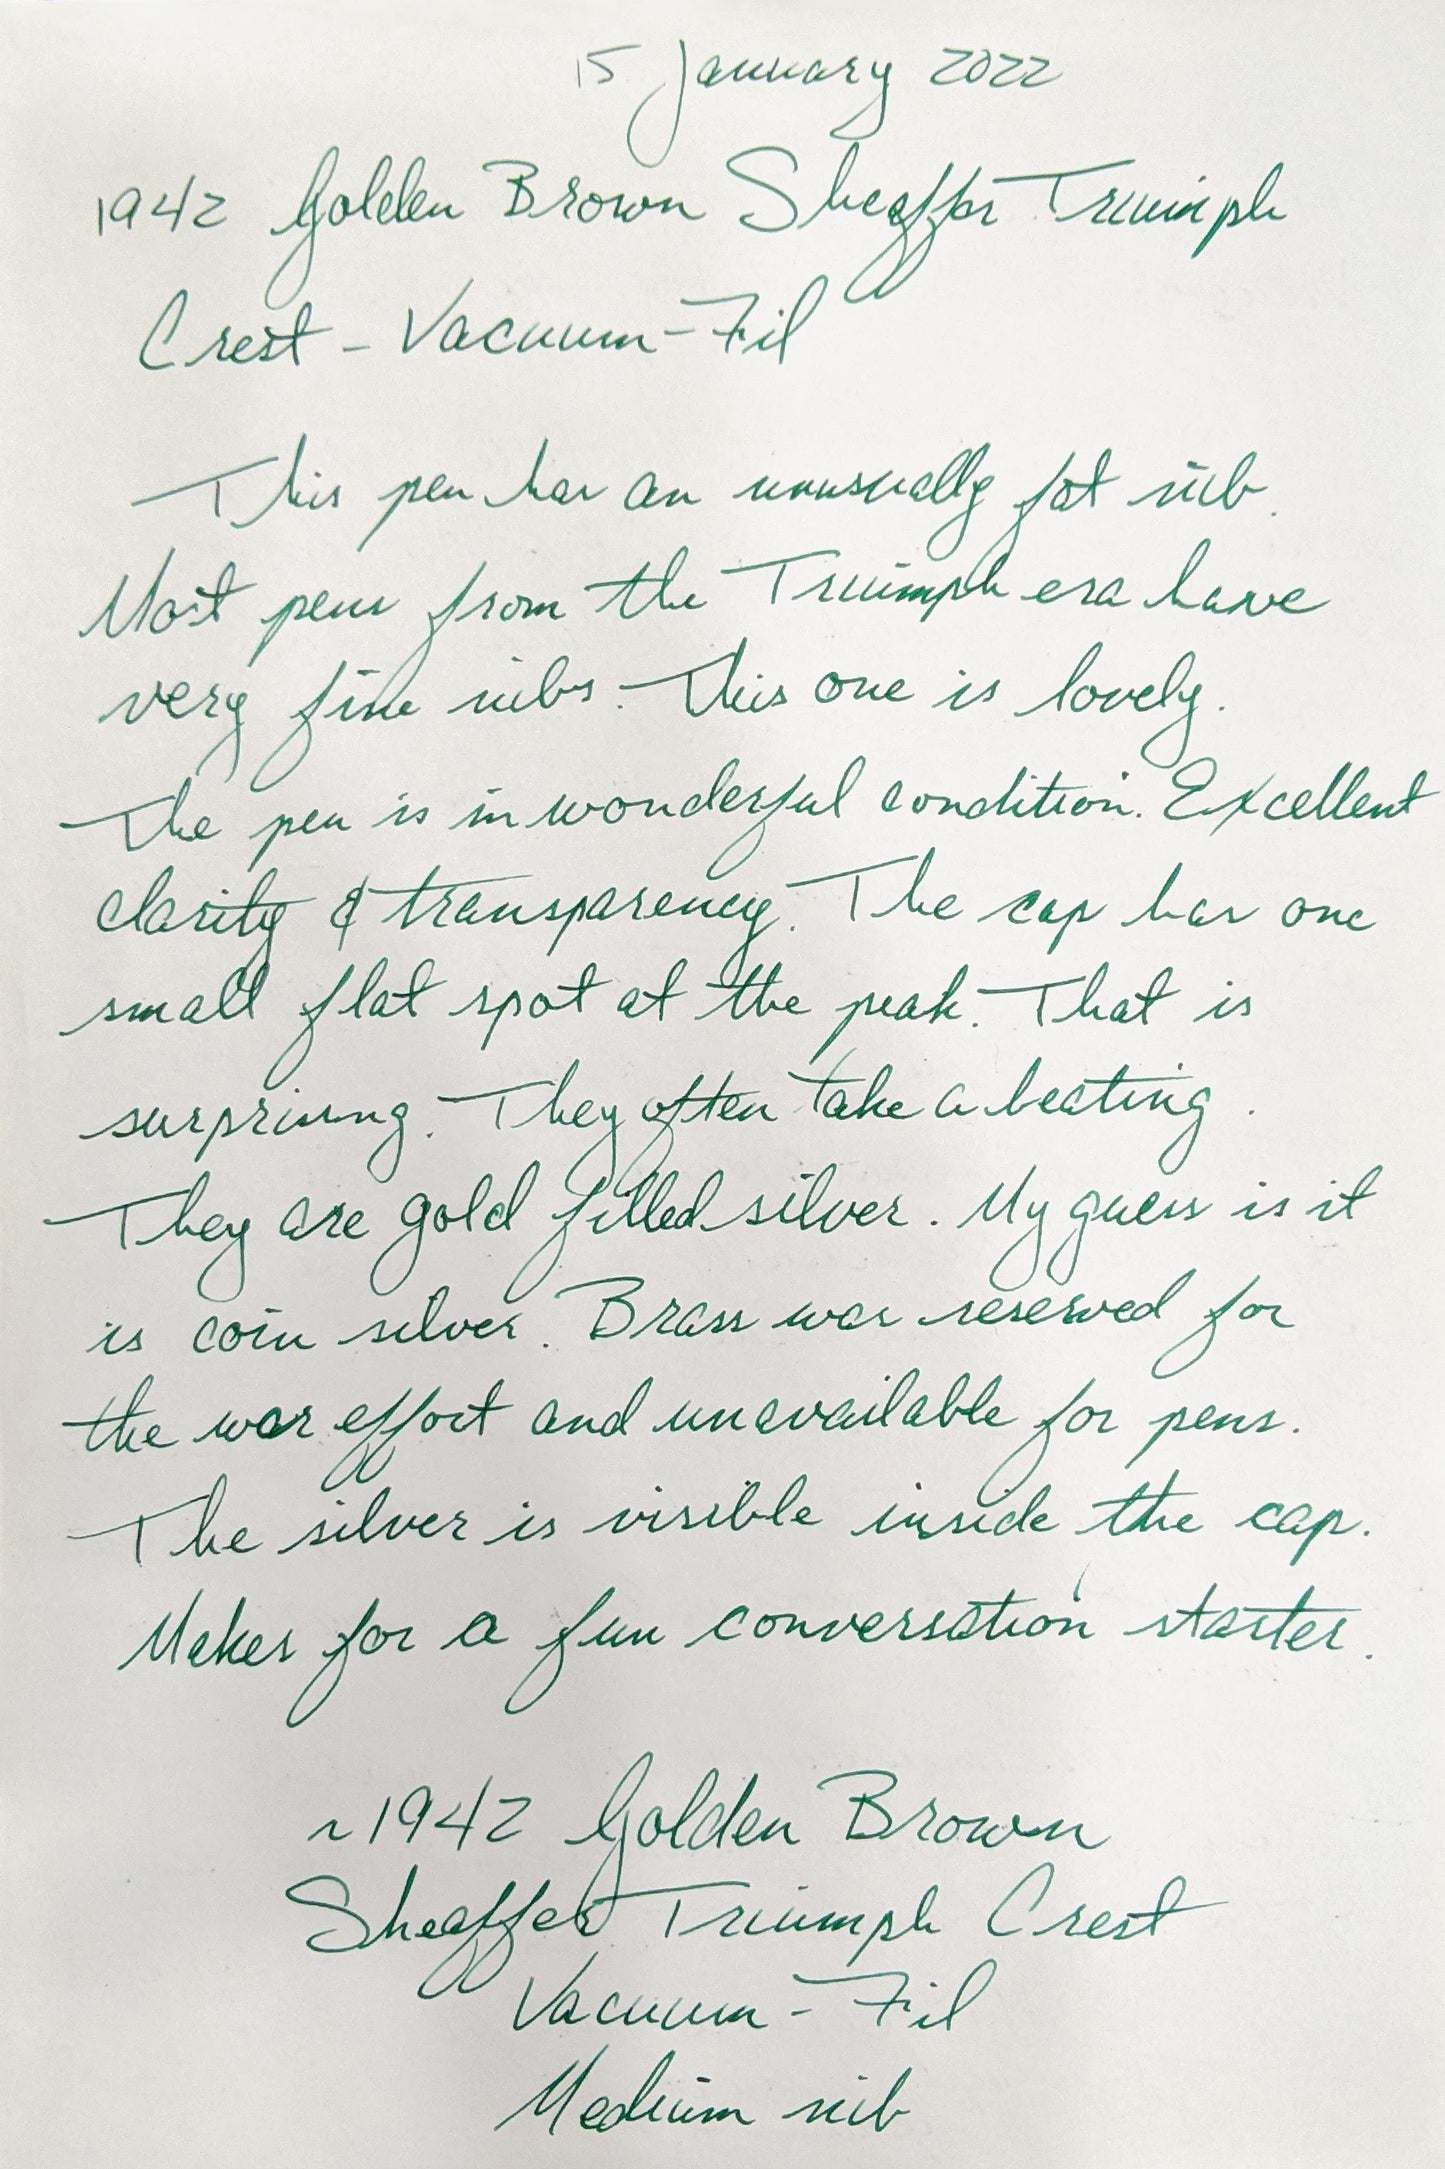 15 January 2022
1942 Golden Brown Sheaffer Triumph
Crest - Vacuum-Fil
This pen has an unusually fat nib.
Most pens from the Triumph era have
very fine nibs. This one is lovely.
The pen is in wonderful condition. Excellent
clarity & transparency. The cap has one
small flat spot at the peak. That is
surprising. They often take a beating.
They are gold filled silver. My guess is it
is coin silver. Brass was reserved for
the war effort and unavailable for pens.
The silver is visible inside the cap.
Makes for a fun conversation starter.
~1942 Golden Brown
Sheaffer Triumph Crest
Vacuum-Fil
Medium nib